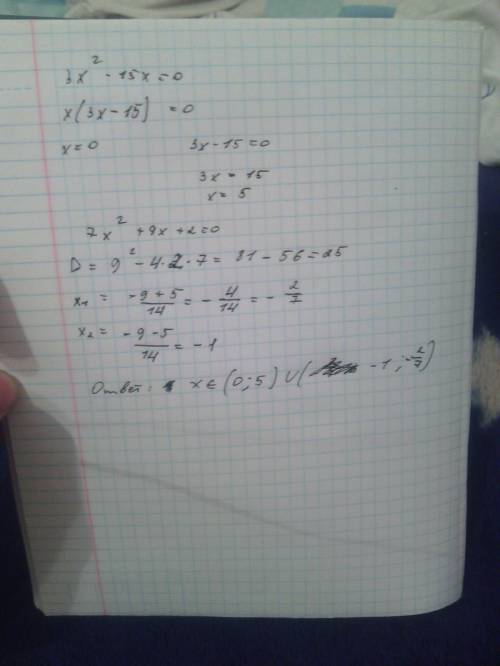 3x² - 15x = 0
x(3x - 15) = 0
x = 0 3x - 15 = 0
3x = 15
x = 5
7x² + 9x + 2 = 0
D = 9² - 4·2·7 = 81 - 56 = 25
x₁ = (-9+5)/14 = -4/14 = -2/7
x₂ = (-9-5)/14 = -1
Ответ: x ∈ (0; 5) ∪ (-1; -2/7)